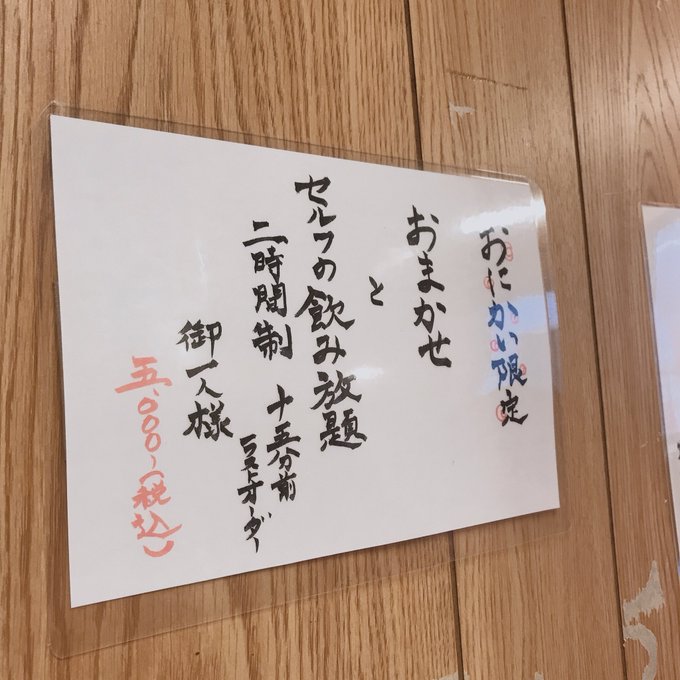 おにかい限定
おまかせ
と
セルフの飲み放題
二時間制 十五分前
ラストオーダー
御一人様
五、000〜(税込)